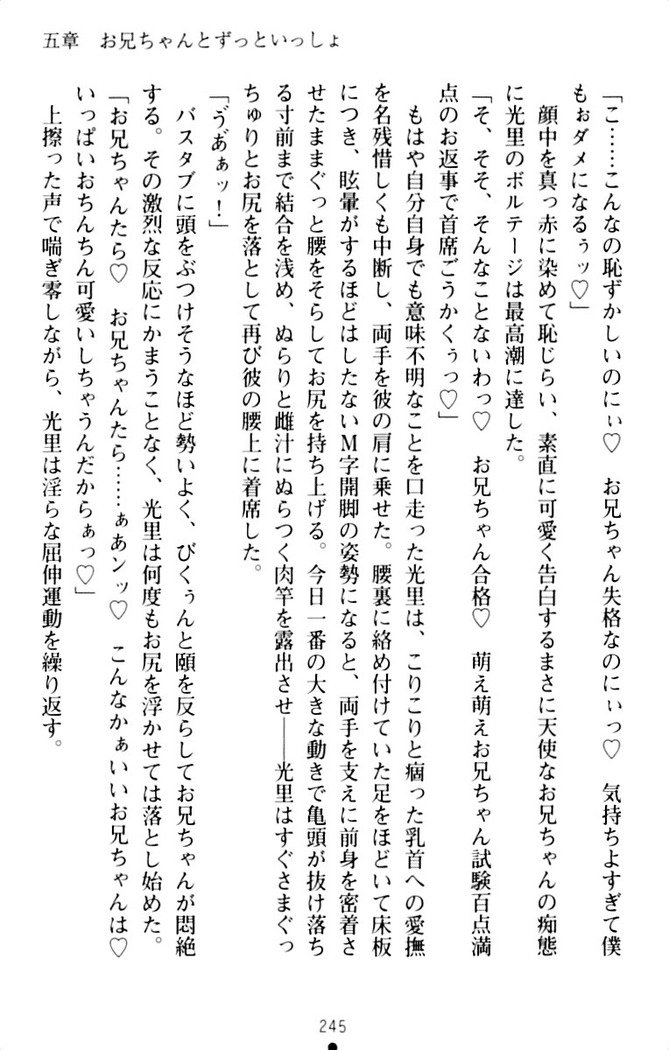 五章　お兄ちゃんとずっといっしょ
「こ……こんなの恥ずかしいのにぃ♡　お兄ちゃん失格なのにぃっ♡　気持ちよすぎて僕
もぉダメになるぅッ♡」
顔中を真っ赤に染めて恥じらい、素直に可愛く告白するまさに天使なお兄ちゃんの痴態
に光里のボルテージは最高潮に達した。
「そ、そそ、そんなことないわっ♡　お兄ちゃん合格♡　萌え萌えお兄ちゃん試験百点満
点のお返事で首席ごうかくぅっ♡」
もはや自分自身でも意味不明なことを口走った光里は、こりこりと痼った乳首への愛撫
を名残惜しくも中断し、両手を彼の肩に乗せた。腰裏に絡め付けていた足をほどいて床板
につき、眩暈がするほどはしたないＭ字開脚の姿勢になると、両手を支えに前身を密着さ
せたままぐっと腰をそらしてお尻を持ち上げる。今日一番の大きな動きで亀頭が抜け落ち
る寸前まで結合を浅め、ぬらりと雌汁にぬらつく肉竿を露出させ――光里はすぐさまぐっ
ちゅりとお尻を落として再び彼の腰上に着席した。
「ゔあ゙ぁッ！」
バスタブに頭をぶつけそうなほど勢いよく、びくぅんと頤を反らしてお兄ちゃんが悶絶
する。その激烈な反応にかまうことなく、光里は何度もお尻を浮かせては落とし始めた。
「お兄ちゃんたら♡　お兄ちゃんたら……ぁあンッ♡　こんなかぁいいお兄ちゃんは♡
いっぱいおちんちん可愛いしちゃうんだからぁっ♡」
上擦った声で喘ぎ零しながら、光里は淫らな屈伸運動を繰り返す。
245